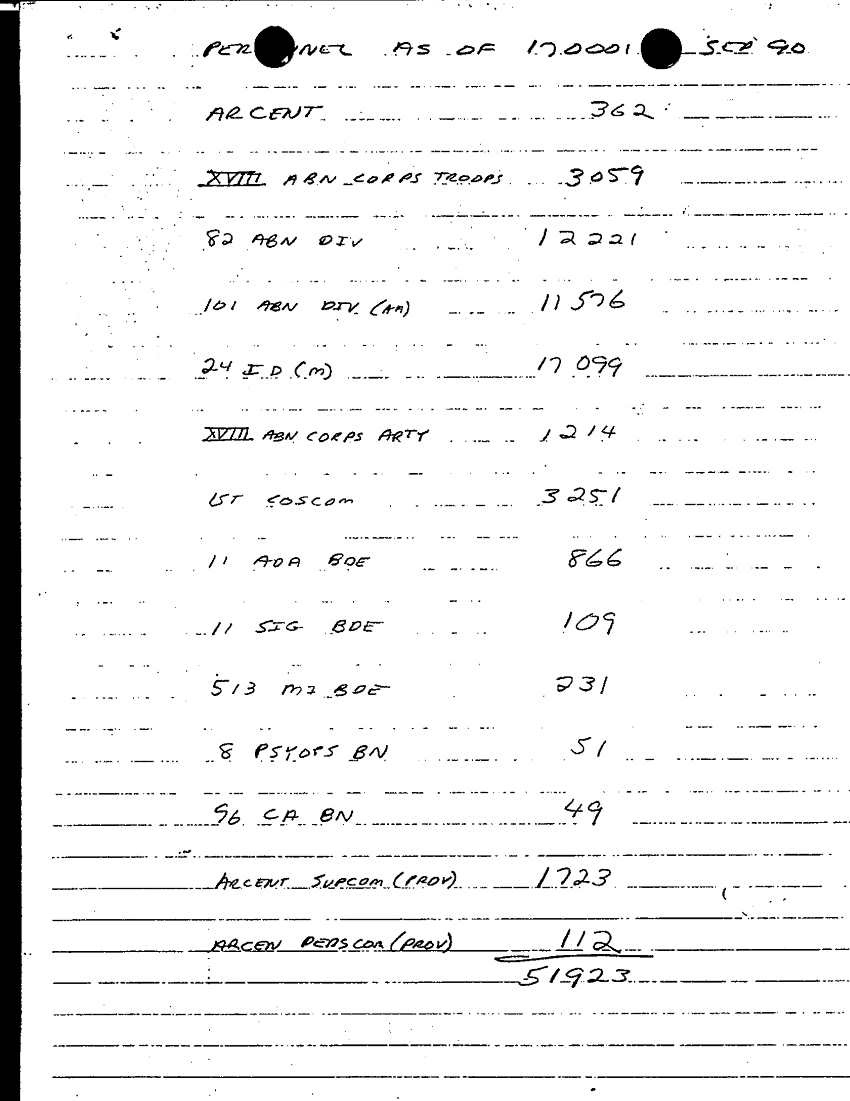 PER NEL AS OF 170001 SEP 90
ARCENT 362
XVIII ABN CORPS TROOPS 3059
82 ABN DIV 12221
101 ABN DIV (AA) 11576
24 ID (M) 17099
XVIII ABN CORPS ARTY 1214
1ST COSCOM 3251
11 ADA BDE 866
11 SIG BDE 109
513 MI BDE 231
8 PSYOPS BN 51
96 CA BN 49
ARCENT SUPCOM (PROV) 1723
ARCEN PERSCOM (PROV) 112
51923